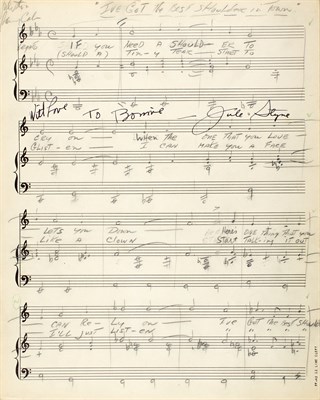 "I've Got The Best Shoulders in Town"
IF YOU NEED A SHOULD-ER TO
(SHOULD A) TIN-Y TEAR START TO
With Love To Bonnie — Jule Styne
CRY ON — WHEN THE ONE THAT YOU LOVE
GLIST-EN — I CAN MAKE YOU A FACE
LETS YOU DOWN ONE thing that you
LIKE A CLOWN START TALK-ING IT OUT
CAN RE-LY ON — I'VE GOT THE BEST SHOULDERS
I'LL JUST LIST-EN